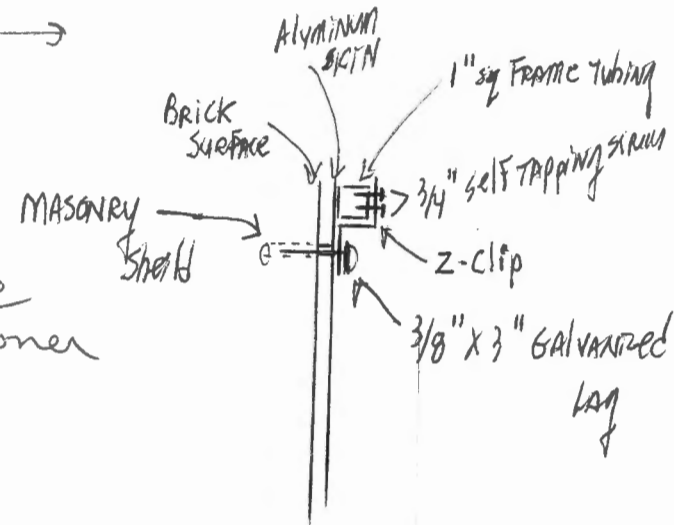 Aluminum
SKIN
1" sq Frame Tubing
Brick
Surface
3/4" Self Tapping
Masonry
Sheild
Z-Clip
oner
3/8" X 3" Galvanized
Lag